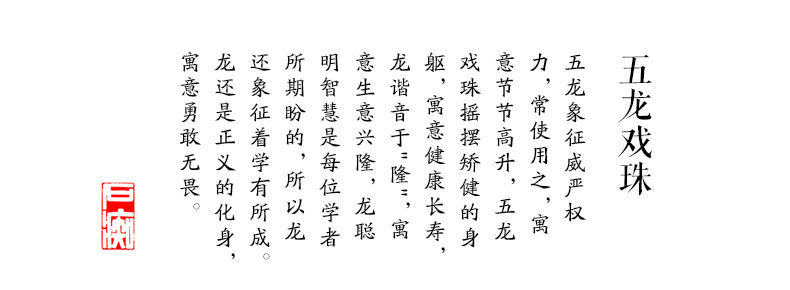 五龙戏珠
五龙象征威严权
力，常使用之，寓
意节节高升，五龙
戏珠摇摆矫健的身
躯，寓意健康长寿，
龙谐音于“隆”，寓
意生意兴隆，龙聪
明智慧是每位学者
所期盼的，所以龙
还象征着学有所成。
龙还是正义的化身，
寓意勇敢无畏。